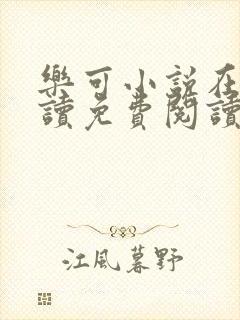 樂可小說在
讀免費閱讀
江風暮野